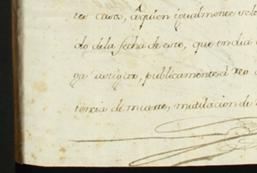 casa, aquien igualmente
do dela fecha de este, que en dia
publicamente reo
tencia de muerte, mutilacion de